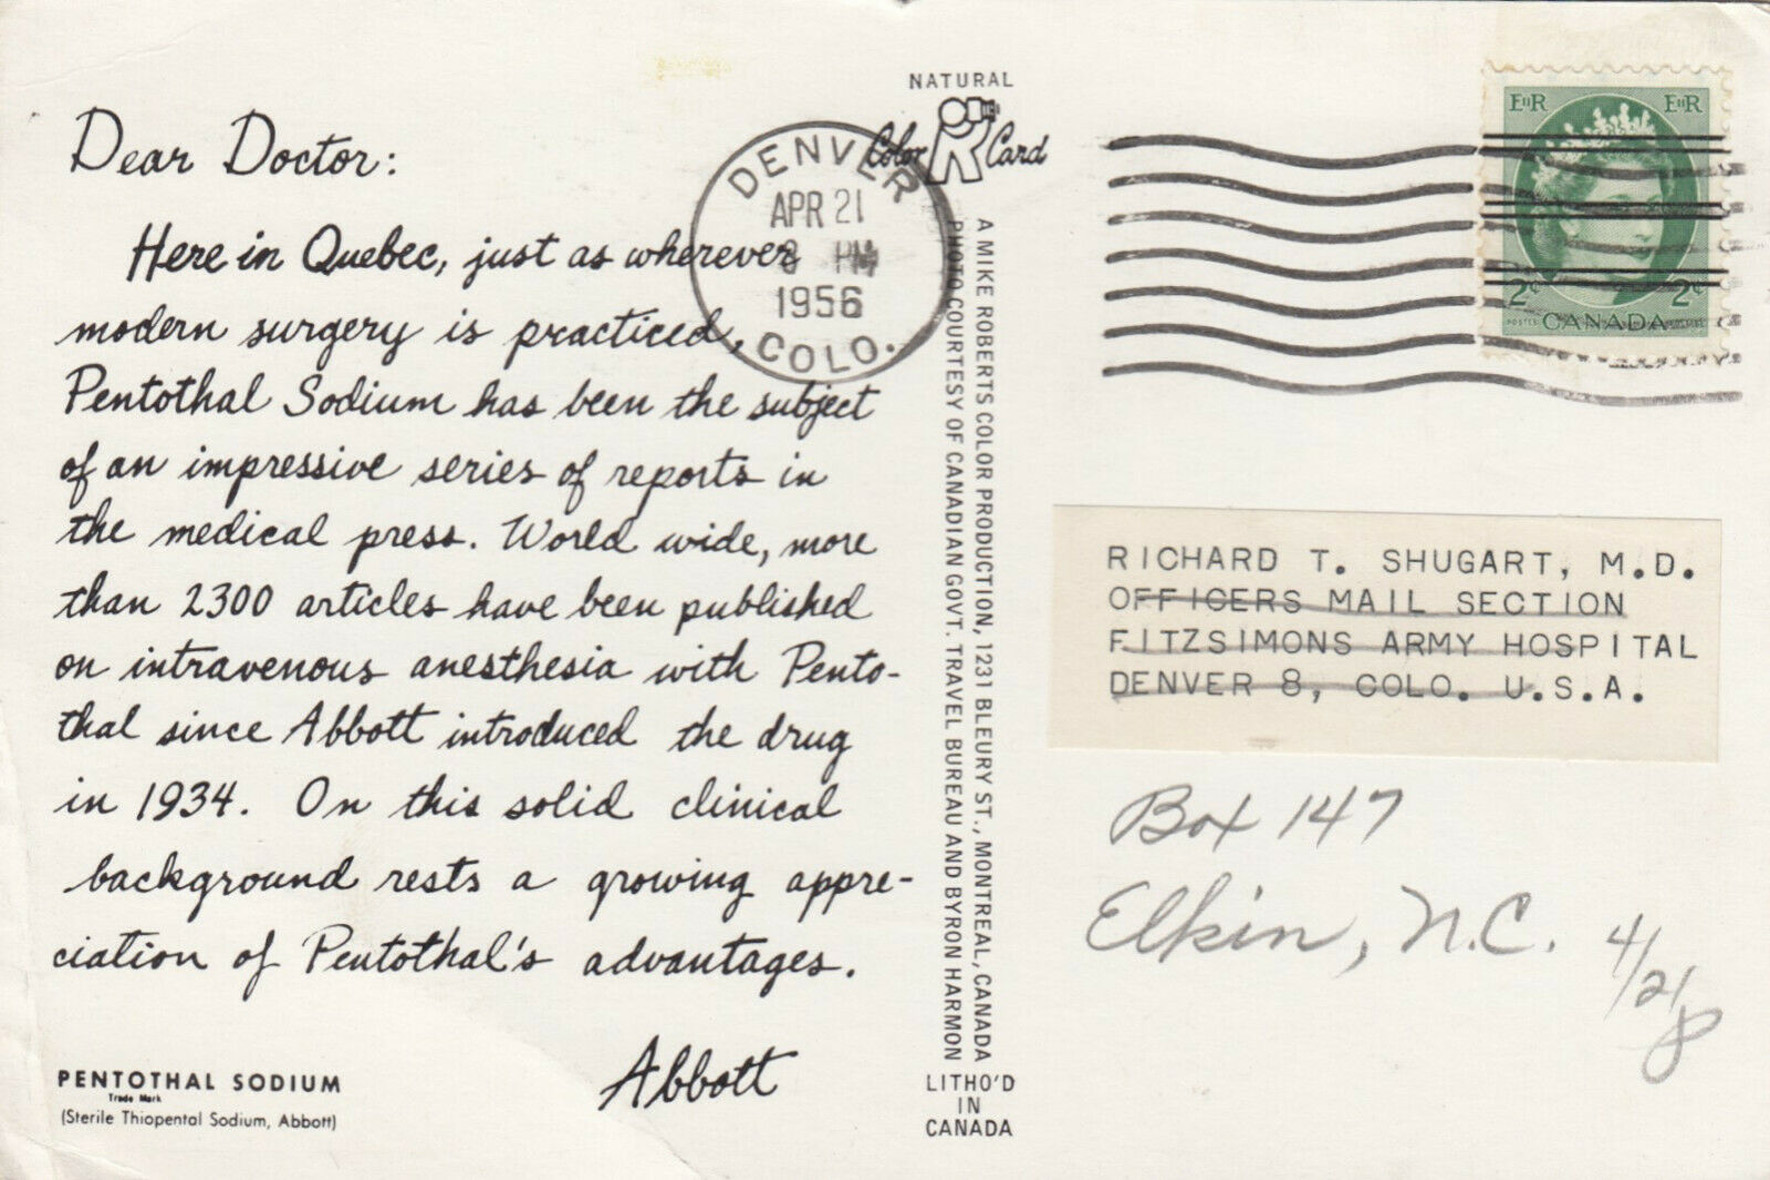 Dear Doctor:
Here in Quebec, just as wherever
modern surgery is practiced,
Pentothal Sodium has been the subject
of an impressive series of reports in
the medical press. World wide, more
than 2300 articles have been published
on intravenous anesthesia with Pento-
thal since Abbott introduced the drug
in 1934. On this solid clinical
background rests a growing appre-
ciation of Pentothal's advantages.
Abbott
PENTOTHAL SODIUM
Trade Mark
(Sterile Thiopental Sodium, Abbott)
DENVER
APR 21
PM
1956
COLO.
NATURAL
Color R Card
A MIKE ROBERTS COLOR PRODUCTION, 1231 BLEURY ST., MONTREAL, CANADA
PHOTO COURTESY OF CANADIAN GOVT. TRAVEL BUREAU AND BYRON HARMON
LITHO'D
IN
CANADA
EIIR EIIR
2¢ 2¢
POSTES CANADA
RICHARD T. SHUGART, M.D.
OFFICERS MAIL SECTION
FITZSIMONS ARMY HOSPITAL
DENVER 8, COLO. U.S.A.
Box 147
Elkin, N.C.
4/21